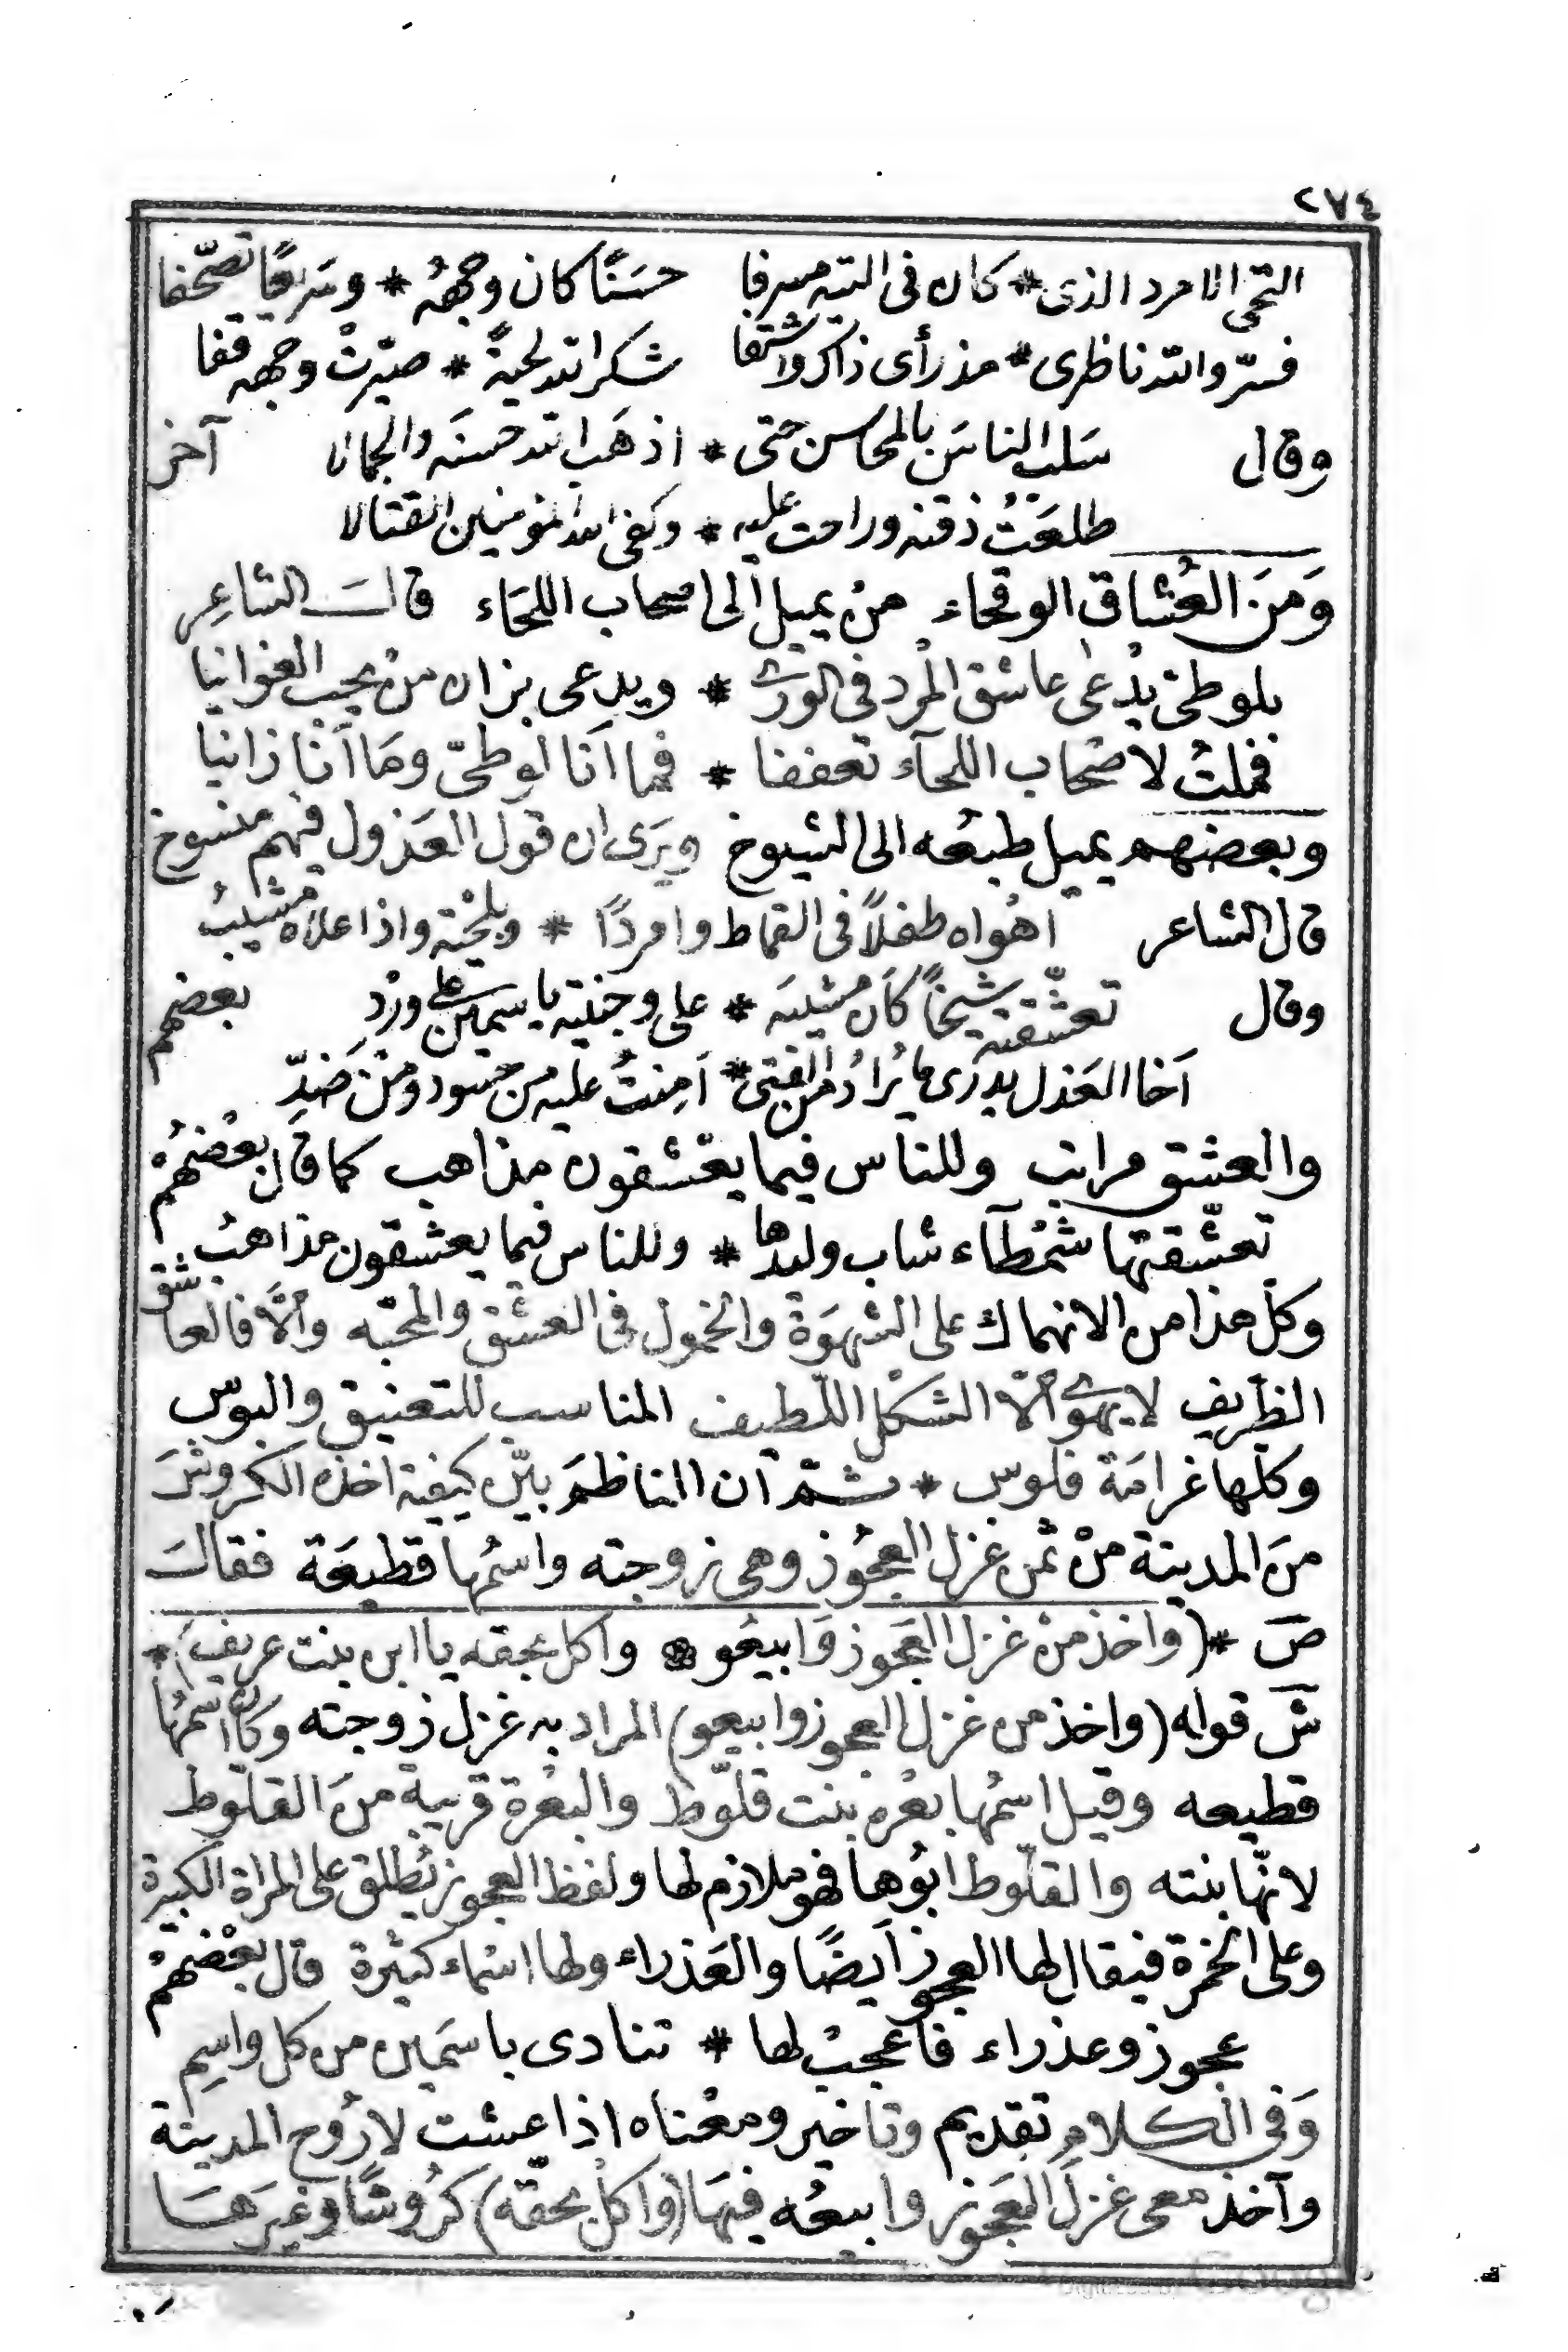 ٢٧٤
التحى الامرد الذى * كان فى التيه مسرفا حسَنًا كان وجههُ * وسَريعًا تصّحفا
فسرّ والله ناظرى * مذ رأى ذاكر واشتفا شكر الله لحيةً * صيّرتْ وجهه قفا
وقال سَلب الناسَ بالمحاسن حتى * اذهَب الله حسنَه والجمالا آخر
طلعَتْ ذقنه وراحت عليه * وكفى الله المؤمنين القتالا
وَمنَ العُشاق الوقحاء منْ يميل الى اصحاب اللحَاء قالَ الشاعِر
بلوطىّ يدْعى عاشق المرد فى الورى * ويدعى بزان منْ يحب الغوانيا
فملتُ لاصْحاب اللحآء تعففا * فما اَنا لوطىّ ومَا اَنا زانيا
وبعضهم يميل طبعُه الى الشيوخ ويَرى ان قول العَذول فيهم منسوخ
قال الشاعر اهْواه طفلاً فى القماط وامردًا * وبلحْية واذا علاه مَشيبُ
وقال تعشّقته شيخًا كاَن مَشيبَه * على وجنتيه ياسمين على وردِ بعضهم
اَخا العَذل يدرى ما يُرادُ من الفتى * اَمِنتُ عليه من حسود ومنْ ضَدِّ
والعشق مراتب وللناس فيما يعْشقون مذاهب كما قال بعْضهُمْ
تعشّقتها شَمْطآء شاب وليدها * وللناس فيما يعشقون مذاهبُ
وكلّ هذا من الانهماك على الشهوَة والخمول فى العشْق والمحبّه واَلّا فالعاشق
الظريف لا يهوى اَلّا الشكْل اللّطيف المناسب للتعنيق والبوس
وكلّها غرامَة فلوس * ثمّ ان الناظمَ بيّن كيفيّة اخذه الكروشَ
منَ المدينة منْ ثمن غزل العجُوز وهى زوجته واسْمُها قطيعَة فقالَ
صَ * (واخذ منْ غزل العَجوز وَابيعُو * واكل بحقه يا ابن بنت عريف) *
شَ قوله (واخذ من غزل العجوز وابيعو) المراد به غزل زوجته وكان اسْمُها
قطيعه وقيل اسْمُها بعْره بنت قلّوط والبعْرة قريبة منَ القلّوط
لانّها بنته والقلّوط ابُوها فهو ملازم لها ولفظ العجوز يُطلق على المراة الكبيرة
وعلى الخمْرة فيقال لها العجوز اَيضًا والعَذراء ولها اسْماء كثيرة قال بعْضهُمْ
عجوز وعذراء فاعْجبْ لها * تنادى باسمَين من كل واسِمِ
وَفى الكلام تقديم وتاخير ومعْناه اذا عشت لارُوح المدينة
وآخذ معى غزلَ العَجوز وابيعُه فيهَا (واكلُ بحقّه) كرُوشًا وغيرَهَا